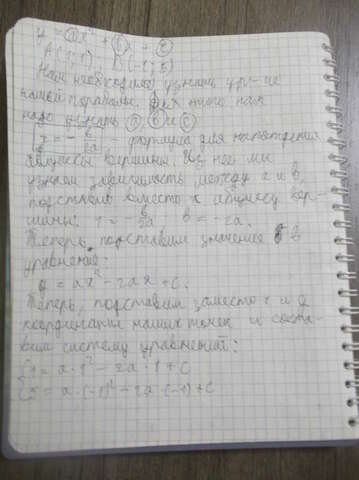 y = ax² + bx + c
A (1;1) B (-1;5)
Нам необходимо узнать ур-ие
нашей параболы. Для этого нам
надо узнать a, b и c
x = -b/2a - формула для нахождения
абсциссы вершины. Из неё мы
узнаем зависимость между a и b,
подставив вместо x абсциссу вер-
шины: 1 = -b/2a b = -2a.
Теперь, подставим значение b в
уравнение:
y = ax² - 2ax + c.
Теперь, подставим заместо x и y
координаты наших точек и соста-
вим систему уравнений:
1 = a·1² - 2a·1 + c
5 = a·(-1)² - 2a·(-1) + c